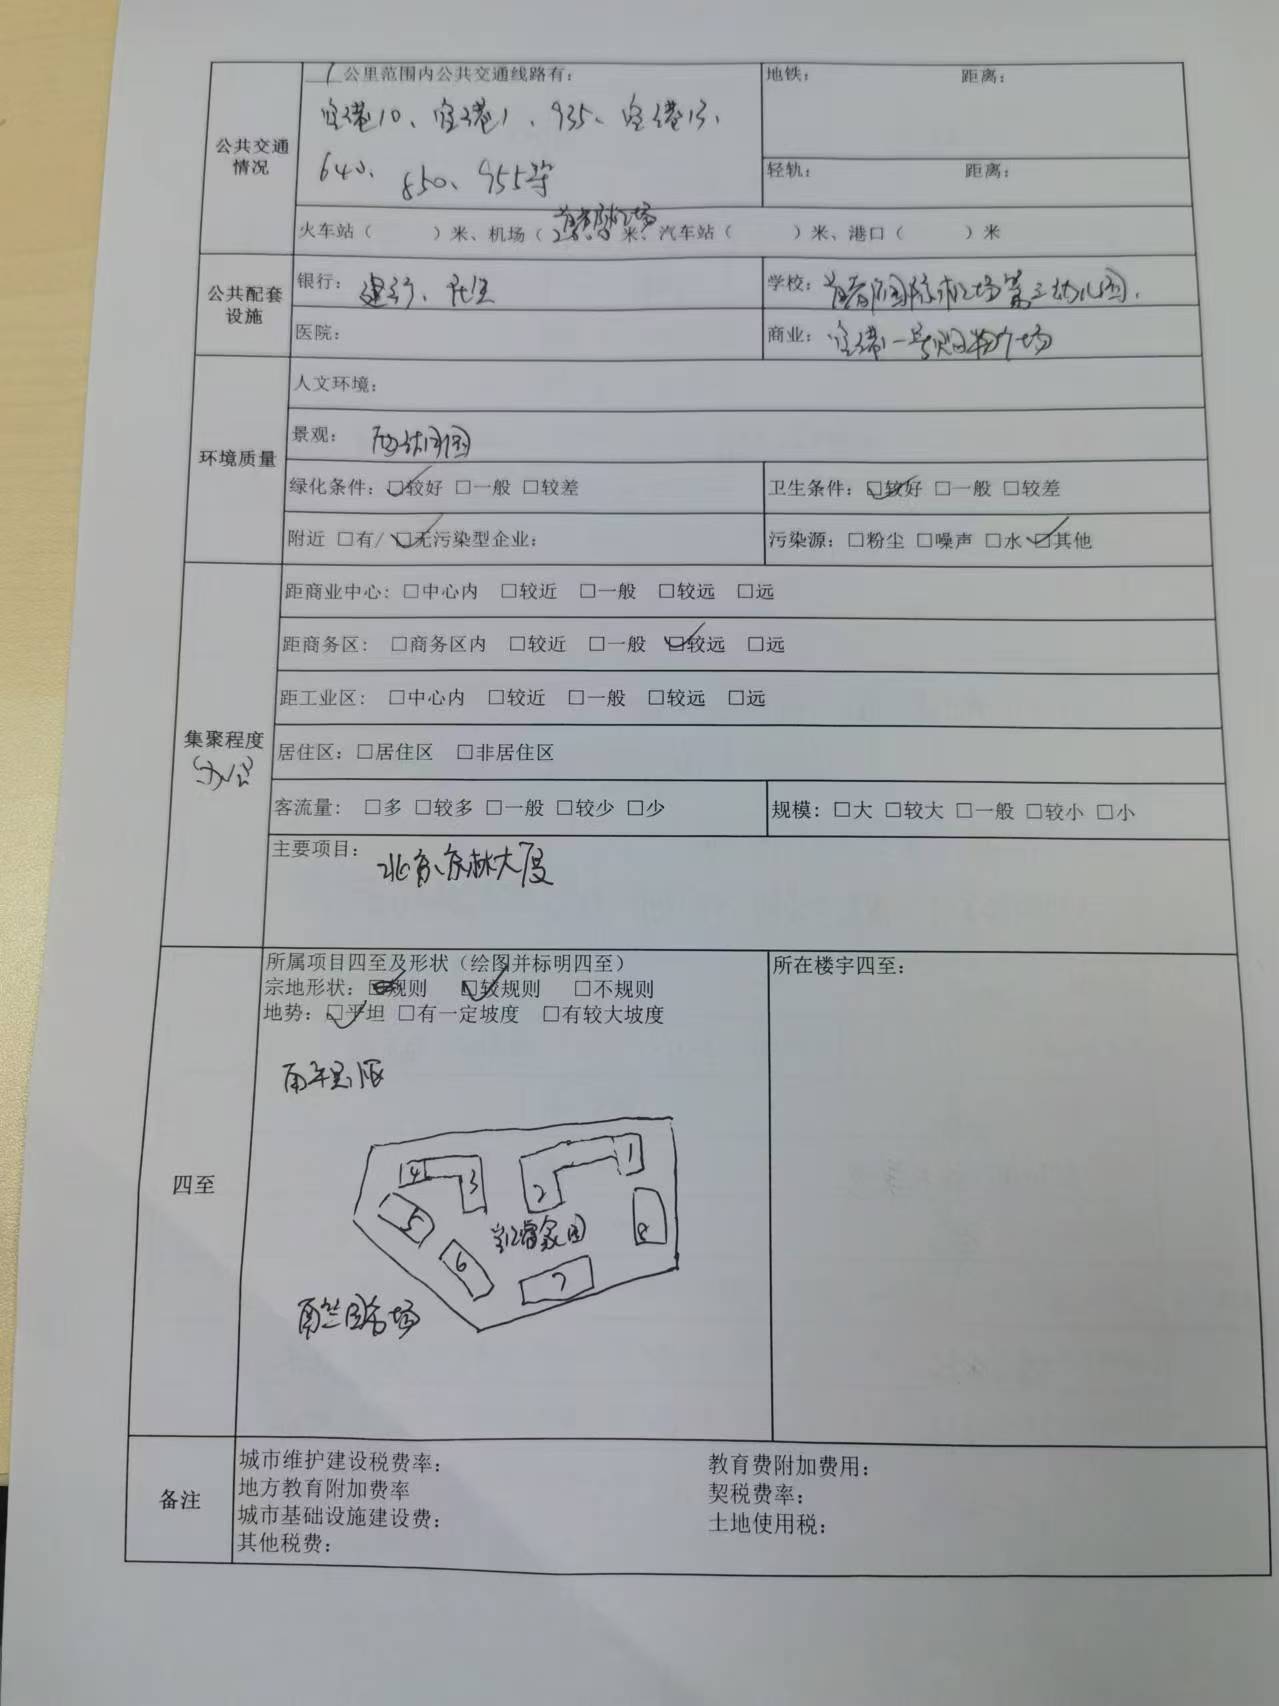 1 公里范围内公共交通线路有：
空港10、空港1、935、空港13、
640、850、955等
地铁： 距离：
公共交通
情况
轻轨： 距离：
火车站（ ）米、机场（首都机场 米、汽车站（ ）米、港口（ ）米
公共配套
设施
银行：建行、民生
学校：首都国际机场第三幼儿园.
医院：
商业：空港一号购物广场
环境质量
人文环境：
景观：
绿化条件：☑较好 □一般 □较差
卫生条件：☑较好 □一般 □较差
附近 □有/☑无污染型企业：
污染源：□粉尘 □噪声 □水 ☑其他
集聚程度
（办公）
距商业中心：□中心内 □较近 □一般 □较远 □远
距商务区： □商务区内 □较近 □一般 ☑较远 □远
距工业区： □中心内 □较近 □一般 □较远 □远
居住区：□居住区 □非居住区
客流量： □多 □较多 □一般 □较少 □少
规模：□大 □较大 □一般 □较小 □小
主要项目：北京京林大厦
四至
所属项目四至及形状（绘图并标明四至）
宗地形状：□规则 ☑较规则 □不规则
地势：☑平坦 □有一定坡度 □有较大坡度
所在楼宇四至：
4 3 2 1
5 6 7 8
家园
备注
城市维护建设税费率：
教育费附加费用：
地方教育附加费率
契税费率：
城市基础设施建设费：
土地使用税：
其他税费：